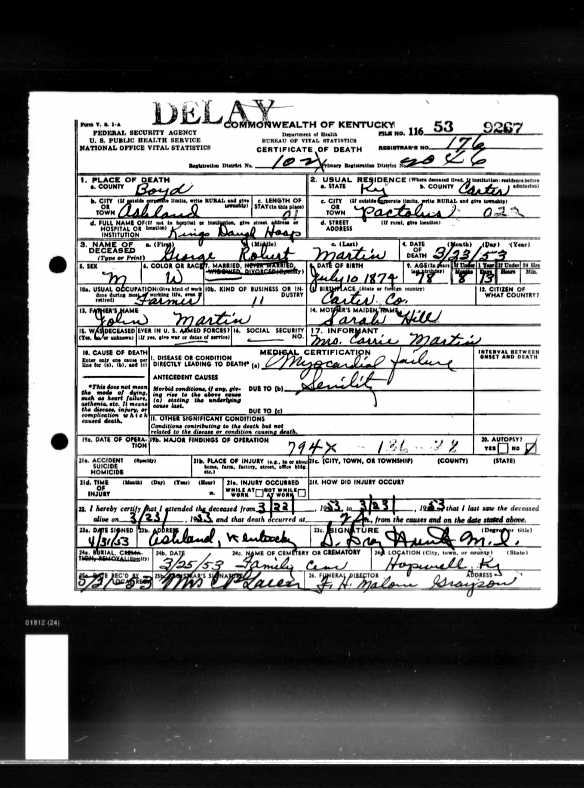 DELAY
Form V. S. 1-A
COMMONWEALTH OF KENTUCKY
FEDERAL SECURITY AGENCY
U. S. PUBLIC HEALTH SERVICE
NATIONAL OFFICE VITAL STATISTICS
Department of Health
BUREAU OF VITAL STATISTICS
CERTIFICATE OF DEATH
FILE NO. 116 53 9267
REGISTRAR'S NO. 176
Registration District No. 102 Primary Registration District 2046
1. PLACE OF DEATH
a. COUNTY Boyd
2. USUAL RESIDENCE (Where deceased lived. If institution: residence before admission)
a. STATE Ky b. COUNTY Carter
b. CITY (If outside corporate limits, write RURAL and give township)
OR TOWN Ashland
c. LENGTH OF STAY (in this place)
c. CITY (If outside corporate limits, write RURAL and give township)
OR TOWN Pactolus 022
d. FULL NAME OF (If not in hospital or institution, give street address or location)
HOSPITAL OR INSTITUTION Kings Daugh Hosp
d. STREET ADDRESS (If rural, give location)
3. NAME OF DECEASED (Type or Print)
a. (First) George (Middle) Robert c. (Last) Martin
4. DATE OF DEATH (Month) (Day) (Year) 3/23/53
5. SEX M
6. COLOR OR RACE W
7. MARRIED, NEVER MARRIED, WIDOWED, DIVORCED (Specify)
8. DATE OF BIRTH July 10 1874
9. AGE (In years last birthday) 78 If Under 1 Year Months 8 Days 13 If Under 24 Hrs Hours Min.
10a. USUAL OCCUPATION (Give kind of work done during most of working life, even if retired) Farmer
10b. KIND OF BUSINESS OR INDUSTRY 11
11. BIRTHPLACE (State or foreign country) Carter Co.
12. CITIZEN OF WHAT COUNTRY?
13. FATHER'S NAME John Martin
14. MOTHER'S MAIDEN NAME Sarah Hill
15. WAS DECEASED EVER IN U. S. ARMED FORCES? (Yes, no, or unknown) (If yes, give war or dates of service)
16. SOCIAL SECURITY NO.
17. INFORMANT Mrs. Carrie Martin
18. CAUSE OF DEATH
Enter only one cause per line for (a), (b), and (c)
MEDICAL CERTIFICATION
INTERVAL BETWEEN ONSET AND DEATH
I. DISEASE OR CONDITION
DIRECTLY LEADING TO DEATH* (a) Myocardial failure
*This does not mean the mode of dying, such as heart failure, asthenia, etc. It means the disease, injury, or complication which caused death.
ANTECEDENT CAUSES
Morbid conditions, if any, giving rise to the above cause (a) stating the underlying cause last.
DUE TO (b) Senility
DUE TO (c)
II. OTHER SIGNIFICANT CONDITIONS
Conditions contributing to the death but not related to the disease or condition causing death.
19a. DATE OF OPERATION
19b. MAJOR FINDINGS OF OPERATION
794X
20. AUTOPSY? YES NO
21a. ACCIDENT SUICIDE HOMICIDE (Specify)
21b. PLACE OF INJURY (e.g., in or about home, farm, factory, street, office bldg., etc.)
21c. (CITY, TOWN, OR TOWNSHIP) (COUNTY) (STATE)
21d. TIME OF INJURY (Month) (Day) (Year) (Hour) m.
21e. INJURY OCCURRED WHILE AT WORK NOT WHILE AT WORK
21f. HOW DID INJURY OCCUR?
22. I hereby certify that I attended the deceased from 3/22, 1953, to 3/23, 1953 that I last saw the deceased
alive on 3/23, 1953 and that death occurred at m., from the causes and on the date stated above.
23a. DATE SIGNED 4/31/53
23b. ADDRESS Ashland, Kentucky
23c. SIGNATURE (Degree or title) Hunt M.D.
24a. BURIAL, CREMATION, REMOVAL (Specify)
24b. DATE 3/25/53
24c. NAME OF CEMETERY OR CREMATORY Family Cem
24d. LOCATION (City, town, or county) (State) Hopewell Ky
25a. DATE REC'D BY LOCAL REG.
25b. REGISTRAR'S SIGNATURE Mrs
26. FUNERAL DIRECTOR ADDRESS F. H. Malone Grayson
01812 (24)